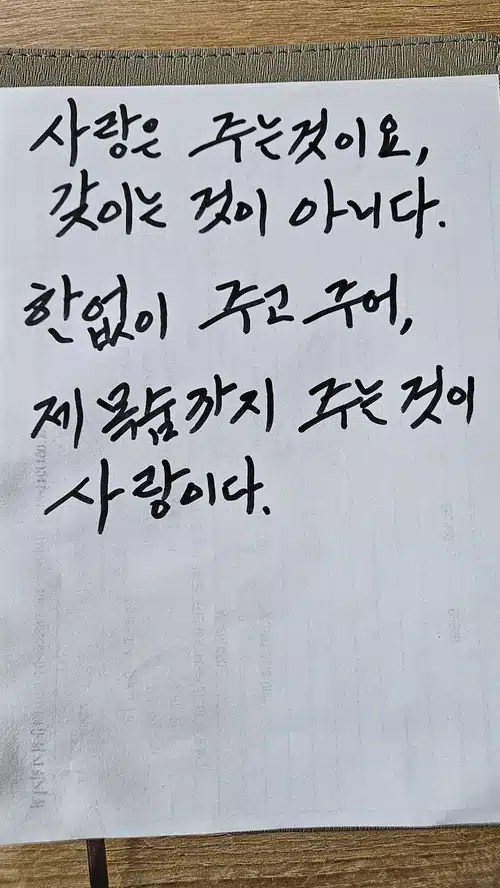 사랑은 주는것이요,
갖이는 것이 아니다.
한없이 주고 주어,
제 목숨까지 주는것이
사랑이다.